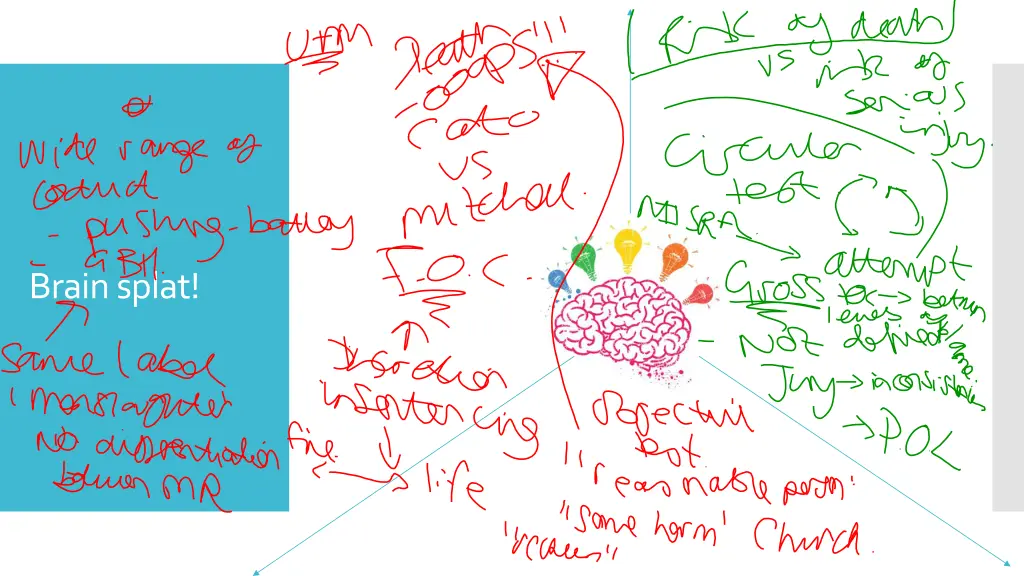 Wide range of
conduct
- pushing - battery
- GBH.
Brain splat!
Same label
'manslaughter
No differentiation
between MR
UAM
Death
'ooops'!!
Cato
vs
mitchell
F.O.C.
Discretion
in sentencing
fine
life
objective
test.
"reasonable person"
"some harm" Church.
Risk of death
vs risk of
serious
injury.
Circular
test
attempt
Gross
levels of
- Not defined
Jury → inconsistencies
→ P.O.L